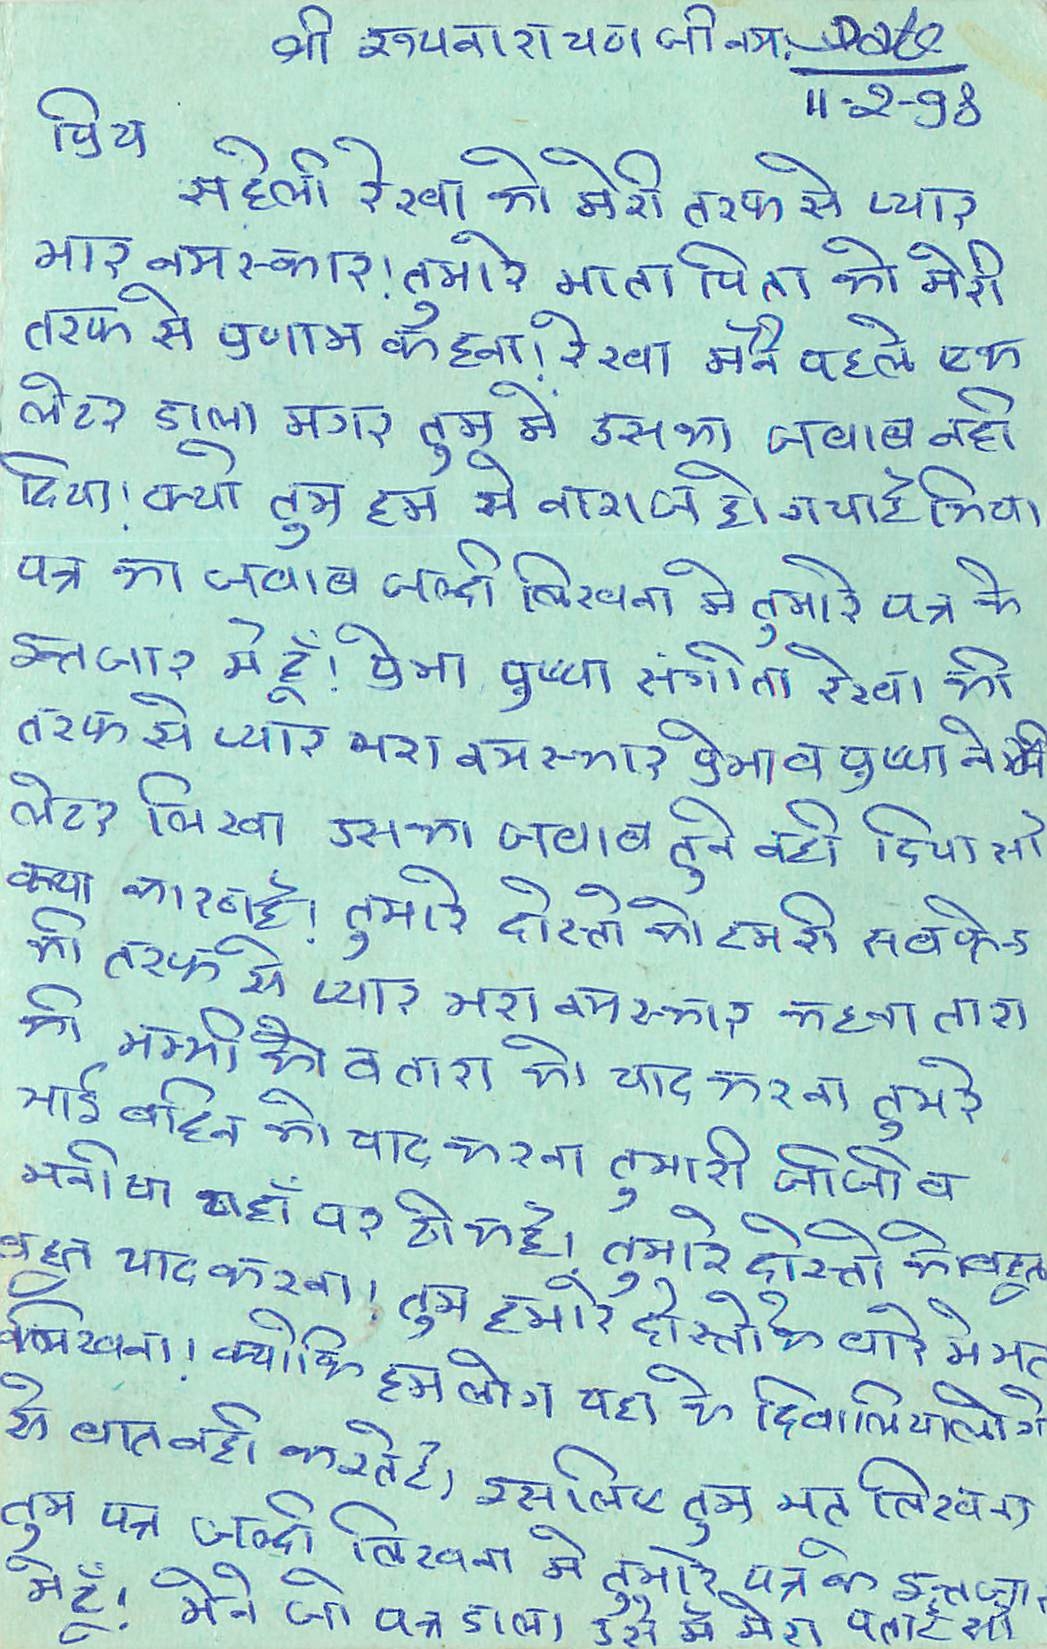 श्री रूपनारायण जी नम: Date
11-2-98
प्रिय
सहेली रेखा को मेरी तरफ से प्यार
भार नमस्कार! तुमारे माता पिता को मेरी
तरफ से प्रणाम कहना! रेखा मैने पहले एक
लेटर डाला मगर तुम में उसका जवाब नही
दिया! क्यो तुम हम से नाराज हो गया है
पत्र का जवाब जल्दी लिखना मे तुमारे पत्र के
इन्तजार मे हूँ! प्रेमा पुष्पा संगीता रेखा की
तरफ से प्यार भरा नमस्कार प्रेमा व पुष्पा ने
लेटर लिखा उसका जवाब तुने नही दिया सो
क्या कारण है! तुमारे दोस्तो को हमरी सब फ्रेन्ड
की तरफ से प्यार भरा नमस्कार कहना तारा
की मम्मी को व तारा को याद करना तुमरे
भाई बहिन को याद करना तुमारी जीजी व
मनीषा यहाँ पर ठीक है! तुमारे दोस्तो को बहुत
बहुत याद करना! तुम हमारे दोस्तो के बारे मे मत
लिखना! क्योकि हम लोग यहा के दिवालिया लोगो
से बात नही करते है, इसलिए तुम मत लिखना
तुम पत्र जल्दी लिखना मे तुमारे पत्र के इन्तजार
मे हूँ! मेने जो पत्र डाला उस मे मेरा पता है सो